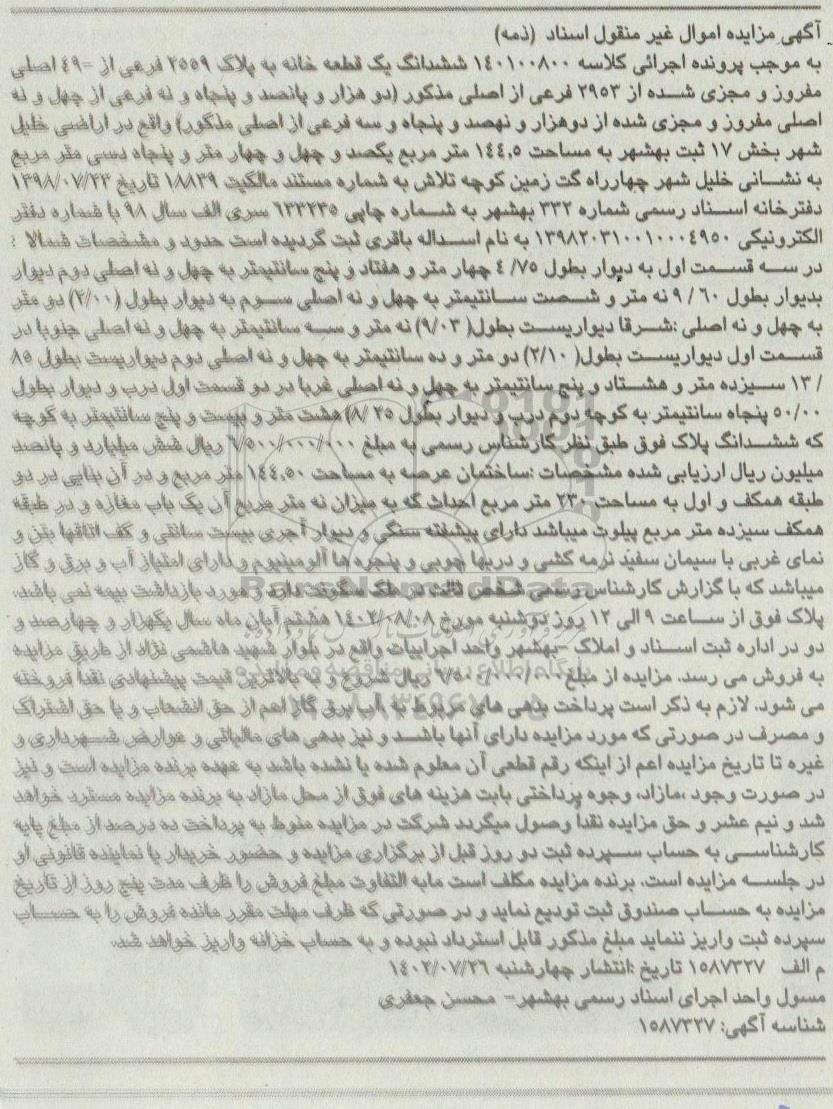 آگهی مزایده اموال غیر منقول اسناد (ذمه)
به موجب پرونده اجرائی کلاسه ۱۴۰۱۰۰۸۰۰ ششدانگ یک قطعه خانه به پلاک ۲۵۵۹ فرعی از -۴۹ اصلی
مفروز و مجزی شده از ۲۹۵۳ فرعی از اصلی مذکور (دو هزار و پانصد و پنجاه و نه فرعی از چهل و نه
اصلی مفروز و مجزی شده از دوهزار و نهصد و پنجاه و سه فرعی از اصلی مذکور) واقع در اراضی خلیل
شهر بخش ۱۷ ثبت بهشهر به مساحت ۱۴۴,۵ متر مربع یکصد و چهل و چهار متر و پنجاه دسی متر مربع
به نشانی خلیل شهر چهارراه گت زمین کوچه تلاش به شماره مستند مالکیت ۱۸۸۳۹ تاریخ ۱۳۹۸/۰۷/۲۳
دفترخانه اسناد رسمی شماره ۳۳۲ بهشهر به شماره چاپی ۶۳۳۲۳۵ سری الف سال ۹۸ با شماره دفتر
الکترونیکی ۱۳۹۸۲۰۳۱۰۰۱۰۰۰۴۹۵۰ به نام اسداله باقری ثبت گردیده است حدود و مشخصات شمالا :
در سه قسمت اول به دیوار بطول ۴/۷۵ چهار متر و هفتاد و پنج سانتیمتر به چهل و نه اصلی دوم دیوار
بدیوار بطول ۹/۶۰ نه متر و شصت سانتیمتر به چهل و نه اصلی سوم به دیوار بطول (۲/۰۰) دو متر
به چهل و نه اصلی :شرقا دیواریست بطول( ۹/۰۳) نه متر و سه سانتیمتر به چهل و نه اصلی جنوبا در
قسمت اول دیواریست بطول( ۲/۱۰) دو متر و ده سانتیمتر به چهل و نه اصلی دوم دیواریست بطول ۸۵
/ ۱۳ سیزده متر و هشتاد و پنج سانتیمتر به چهل و نه اصلی غربا در دو قسمت اول درب و دیوار بطول
۵۰/۰۰ پنجاه سانتیمتر به کوچه دوم درب و دیوار بطول ۸/۲۵) هشت متر و بیست و پنج سانتیمتر به کوچه
که ششدانگ پلاک فوق طبق نظر کارشناس رسمی به مبلغ ۶/۵۰۰/۰۰۰/۰۰۰ ریال شش میلیارد و پانصد
میلیون ریال ارزیابی شده مشخصات :ساختمان عرصه به مساحت ۱۴۴,۵۰ متر مربع و در آن بنایی در دو
طبقه همکف و اول به مساحت ۲۳۰ متر مربع احداث که به میزان نه متر مربع آن یک باب مغازه و در طبقه
همکف سیزده متر مربع پیلوت میباشد دارای پیشخته سنگی و دیوار آجری بیست سانتی و کف اتاقها بتن و
نمای غربی با سیمان سفید نرمه کشی و دربها چوبی و پنجره ها آلومینیوم و دارای امتیاز آب و برق و گاز
میباشد که با گزارش کارشناس رسمی شخص ثالث در ملک سکونت دارد و مورد بازداشت بیمه نمی باشد.
پلاک فوق از ساعت ۹ الی ۱۲ روز دوشنبه مورخ ۱۴۰۲/۰۸/۰۸ هشتم آبان ماه سال یکهزار و چهارصد و
دو در اداره ثبت اسناد و املاک -بهشهر واحد اجراییات واقع در بلوار شهید هاشمی نژاد از طریق مزایده
به فروش می رسد. مزایده از مبلغ ۶/۵۰۰/۰۰۰/۰۰۰ ریال شروع و به بالاترین قیمت پیشنهادی نقداً فروخته
می شود. لازم به ذکر است پرداخت بدهی های مربوط به آب، برق، گاز اعم از حق انشعاب و یا حق اشتراک
و مصرف در صورتی که مورد مزایده دارای آنها باشد و نیز بدهی های مالیاتی و عوارض شهرداری و
غیره تا تاریخ مزایده اعم از اینکه رقم قطعی آن معلوم شده یا نشده باشد به عهده برنده مزایده است و نیز
در صورت وجود ،مازاد، وجوه پرداختی بابت هزینه های فوق از محل مازاد به برنده مزایده مسترد خواهد
شد و نیم عشر و حق مزایده نقداً وصول میگردد شرکت در مزایده منوط به پرداخت ده درصد از مبلغ پایه
کارشناسی به حساب سپرده ثبت دو روز قبل از برگزاری مزایده و حضور خریدار یا نماینده قانونی او
در جلسه مزایده است. برنده مزایده مکلف است مابه التفاوت مبلغ فروش را ظرف مدت پنج روز از تاریخ
مزایده به حساب صندوق ثبت تودیع نماید و در صورتی که ظرف مهلت مقرر مانده فروش را به حساب
سپرده ثبت واریز ننماید مبلغ مذکور قابل استرداد نبوده و به حساب خزانه واریز خواهد شد.
م الف ۱۵۸۷۳۲۷ تاریخ :انتشار چهارشنبه ۱۴۰۲/۰۷/۲۶
مسول واحد اجرای اسناد رسمی بهشهر- محسن جعفری
شناسه آگهی: ۱۵۸۷۳۲۷